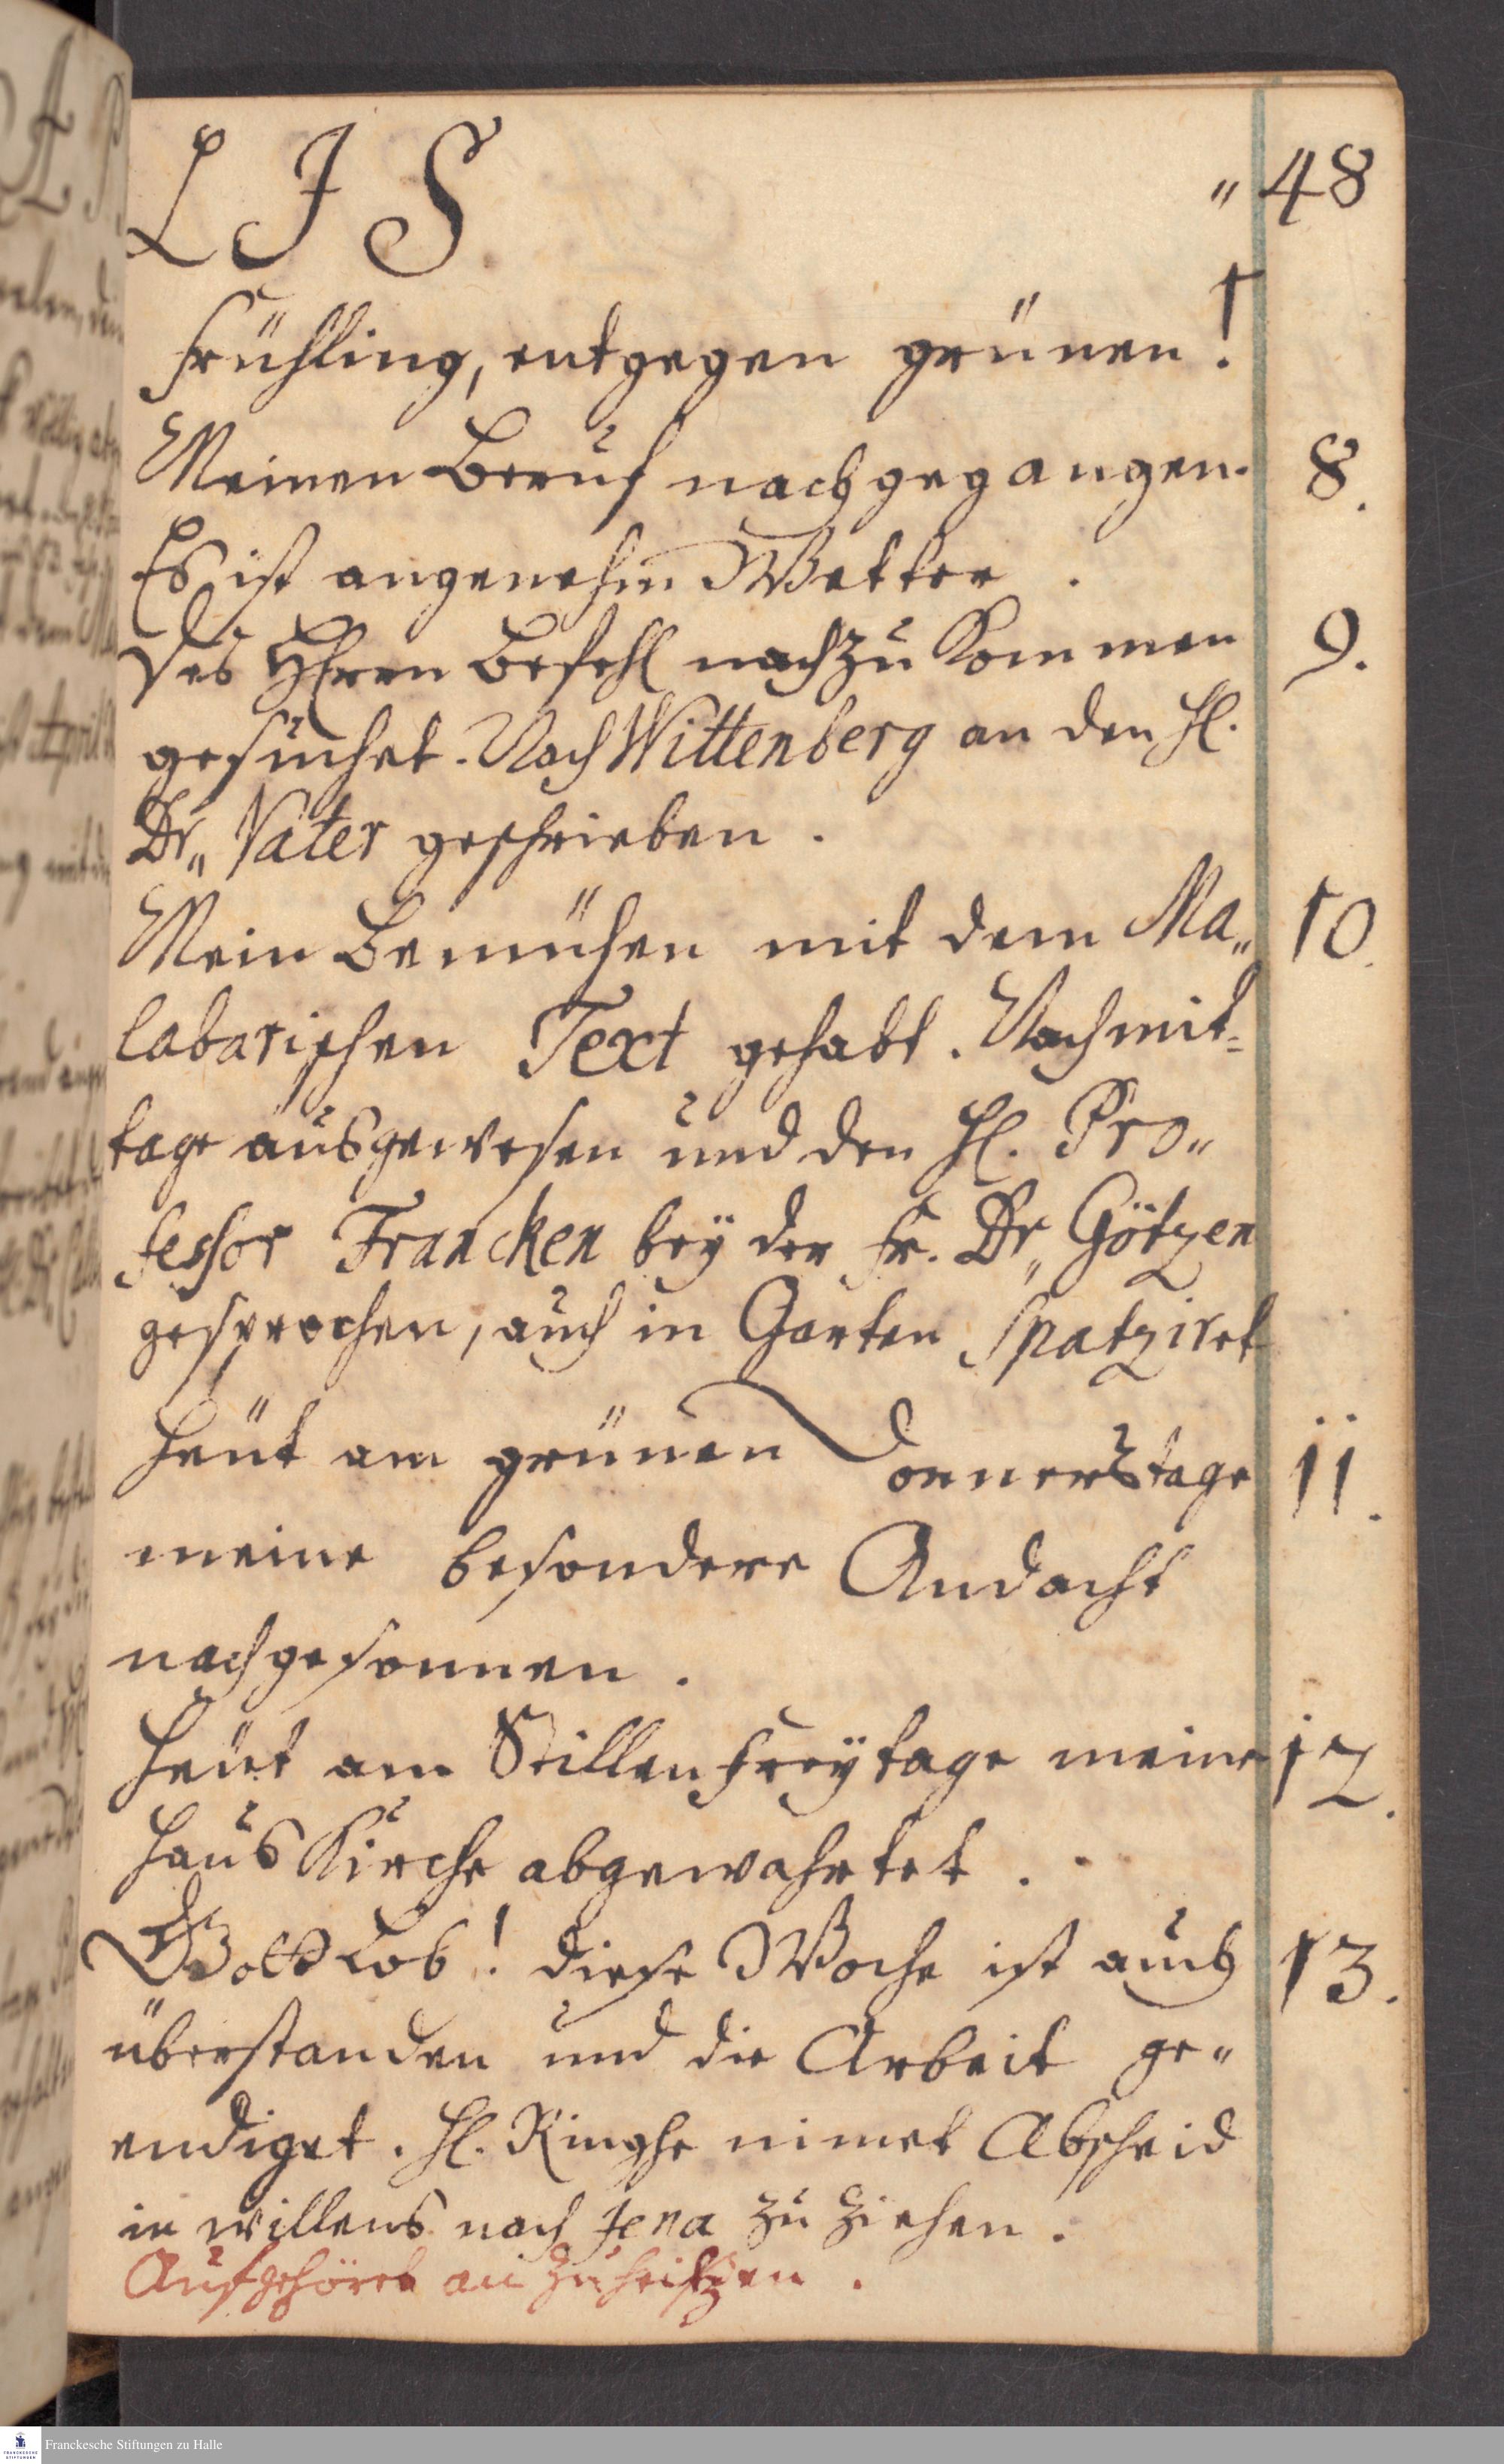 L I S „ 48
Frühling, entgegen grünen!
Meinen Beruf nachgegangen. 8.
Es ist angenehm Wetter.
Des HErrn Befehl nachzukommen 9.
gesuchet. Nach Wittenberg an den H.
Dr„ Vater geschrieben.
Mein Bemühen mit dem Ma„ 10.
labarischen Text gehabt. Nachmit=
tage ausgewesen und den H. Pro„
fessor Francken bey der Fr. Dr„ Götzen
gesprochen, auch in Garten Spatziret
Heüt am grünen Donnerstage 11.
meine besondere Andacht
nachgesonnen.
Heüt am Stillen Freÿtage meine 12.
Haus Kirche abgewahrtet.
Gott Lob! diese Woche ist auch 13.
überstanden und die Arbeit ge„
endiget. H. Ringhe nimet Abscheid
in willens nach Jena zu ziehen.
Aufgehöret ein zu heitzen.
Franckesche Stiftungen zu Halle